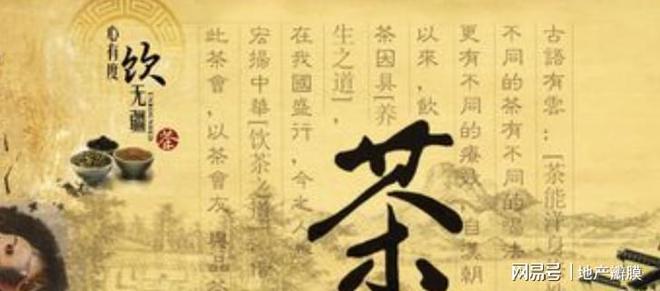 古語有雲：[茶能洋身
不同的茶有不同的
更有不同的療效，自漢朝
以來，飲
茶因具[养
生之道]，
在我國盛行，今之人
宏揚中華[饮茶之道]，
此茶會，以茶會友，與品茶
茶
心有度
饮无疆
茶
网易号 | 地产瓣膜